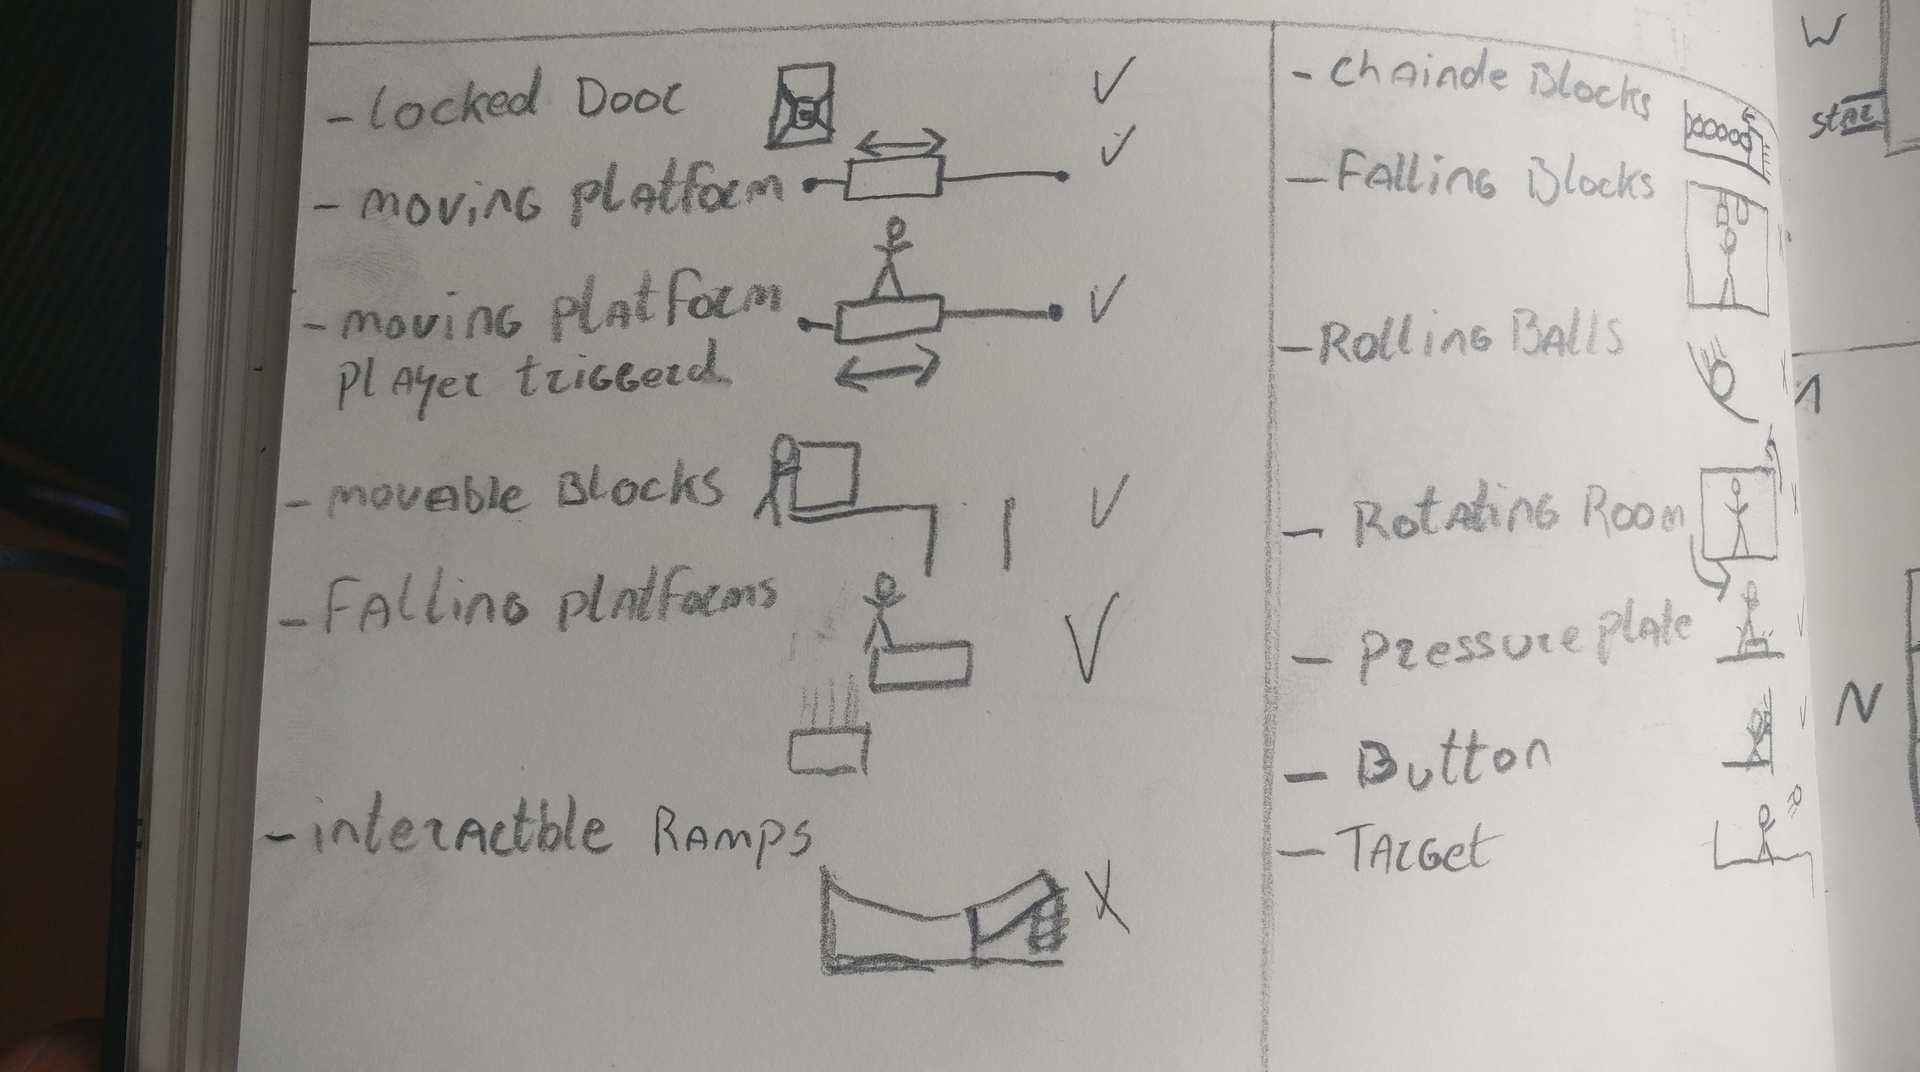 - Locked Door
- moving platform
- moving platform
player triggerd
- moveable Blocks
- Falling platforms
- interactble Ramps
- Chainde Blocks
- Falling Blocks
- Rolling Balls
- Rotating Room
- Pressure plate
- Button
- Target
W
N